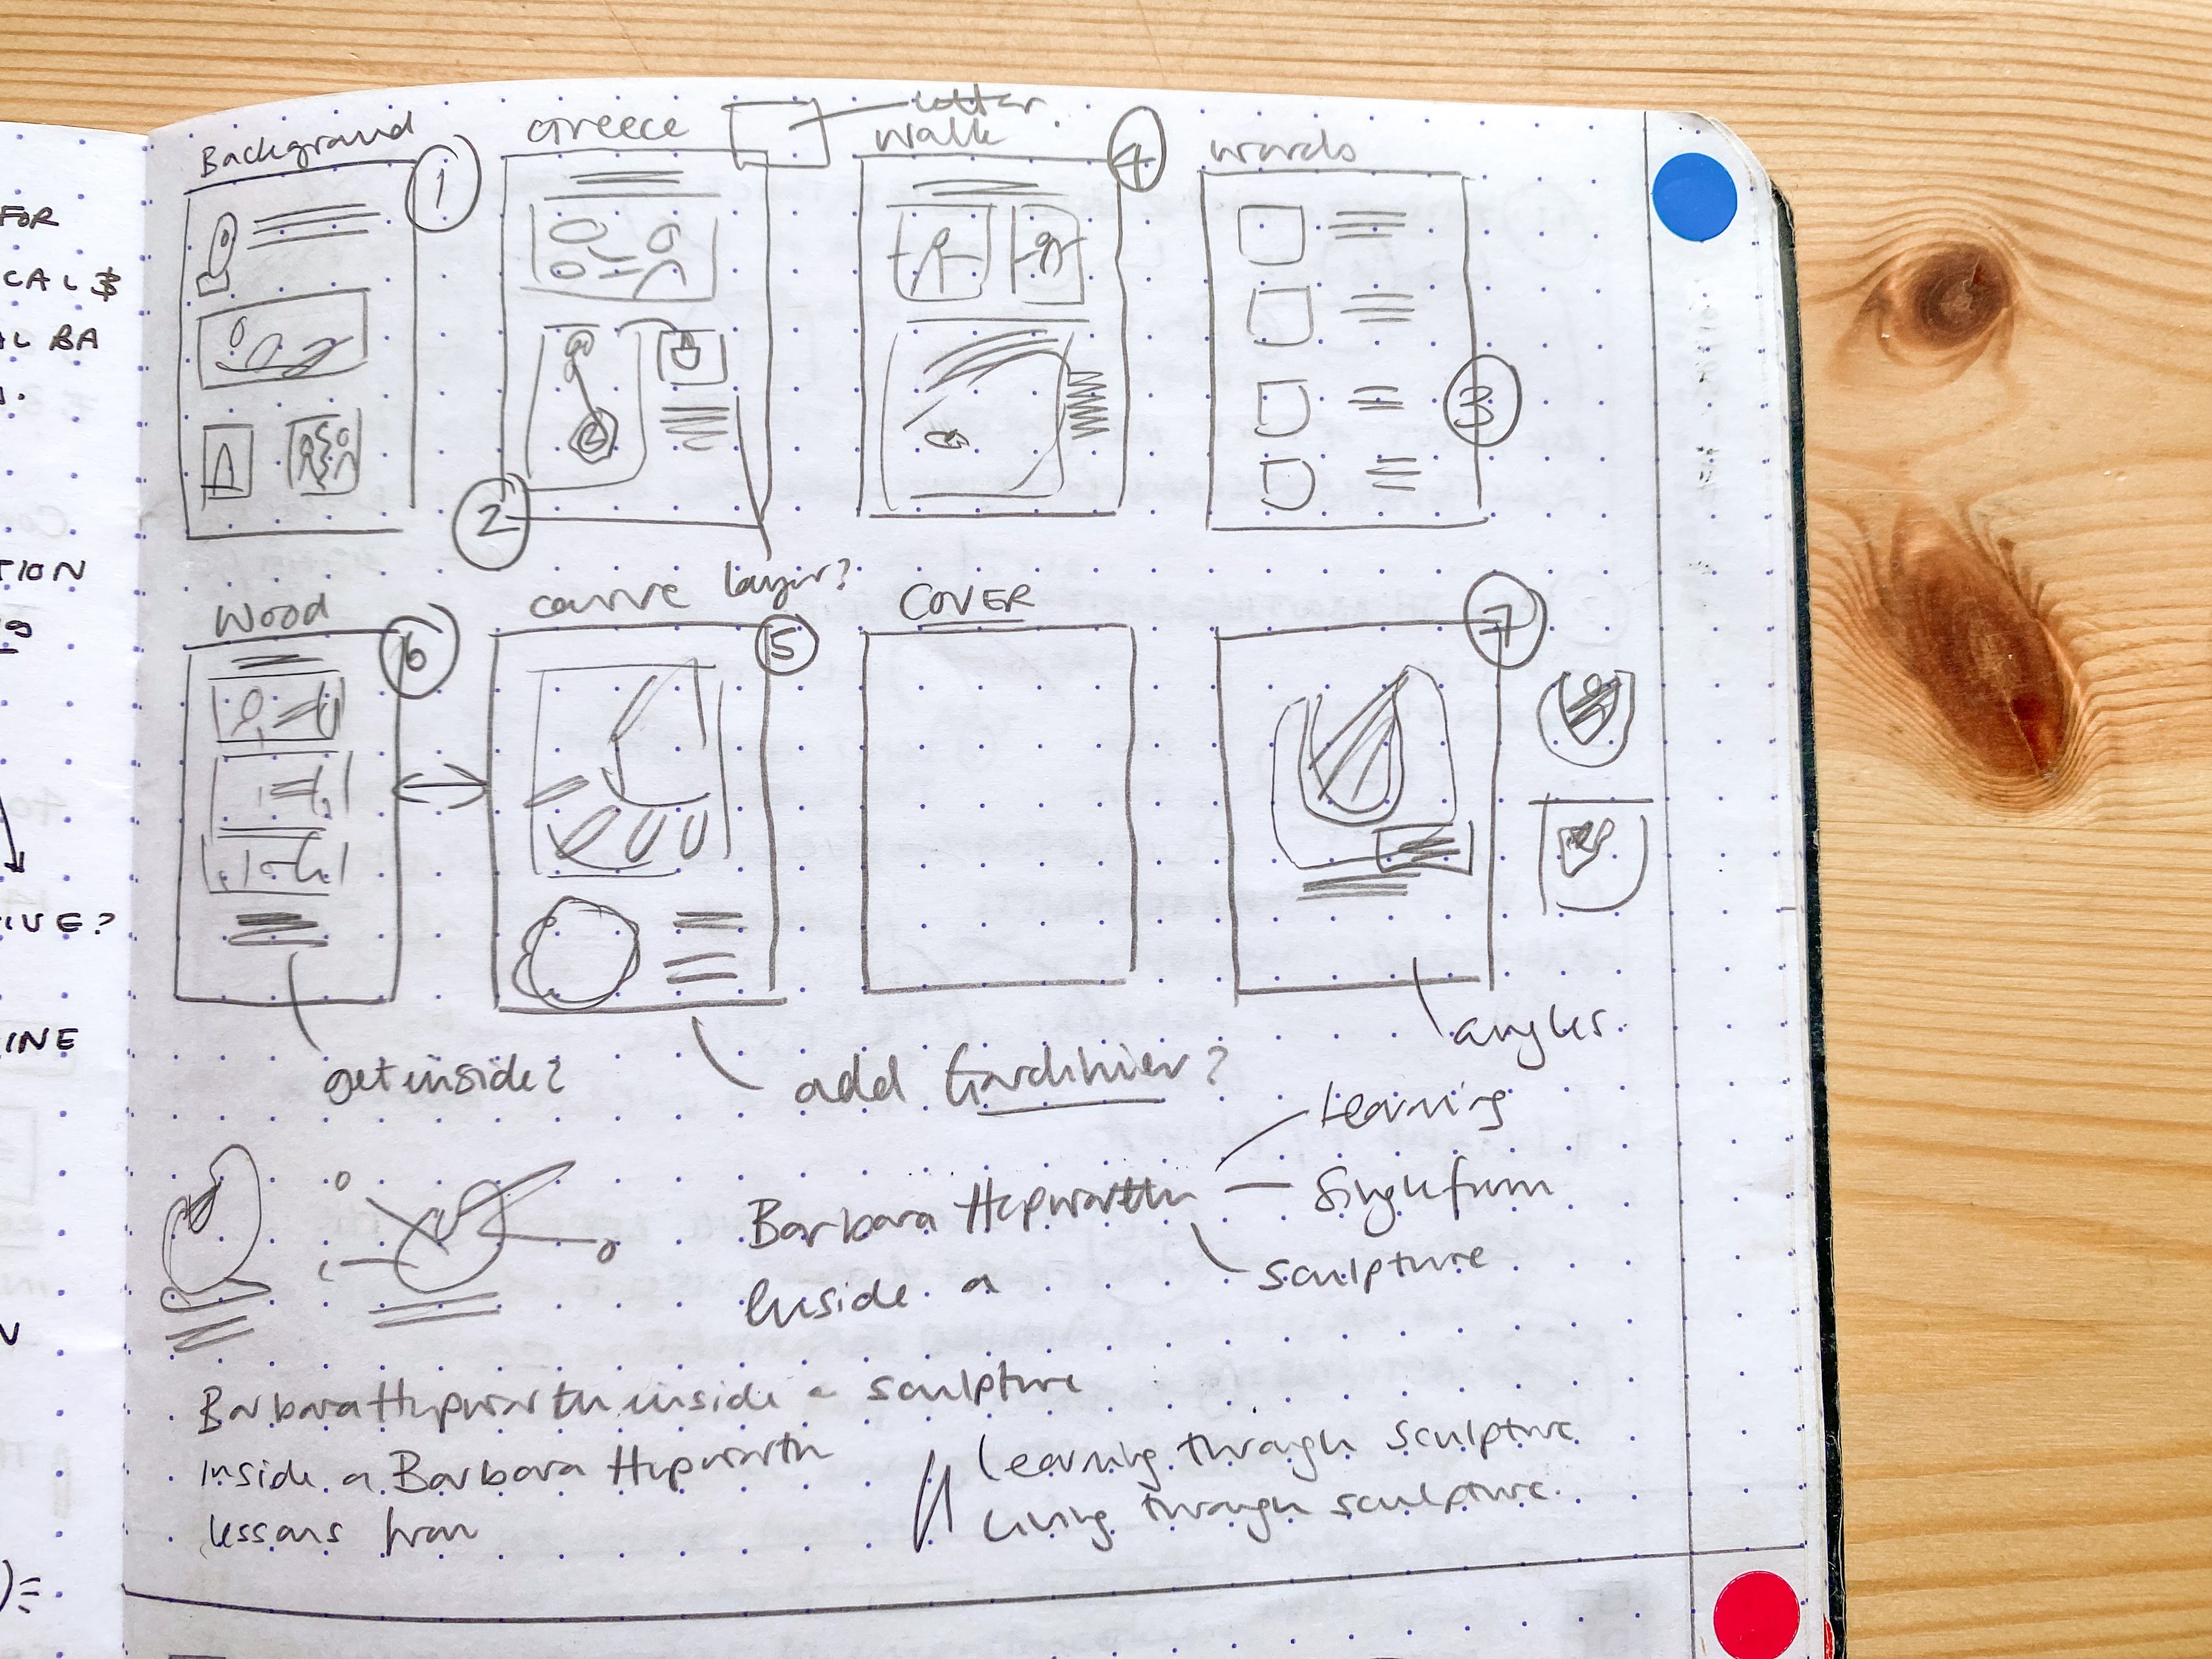 FOR
CAL $
AL BA
TION
IVE?
INE
Background
1
Greece
letter
walk
4
words
2
3
layer?
Wood
6
carve
5
COVER
7
get inside?
add Gardinier?
angles
Barbara Hepworth
Learning
Single form
sculpture
Inside a
Barbara Hepworth inside a sculpture
Inside a Barbara Hepworth
lessons from
Learning through sculpture
Living through sculpture